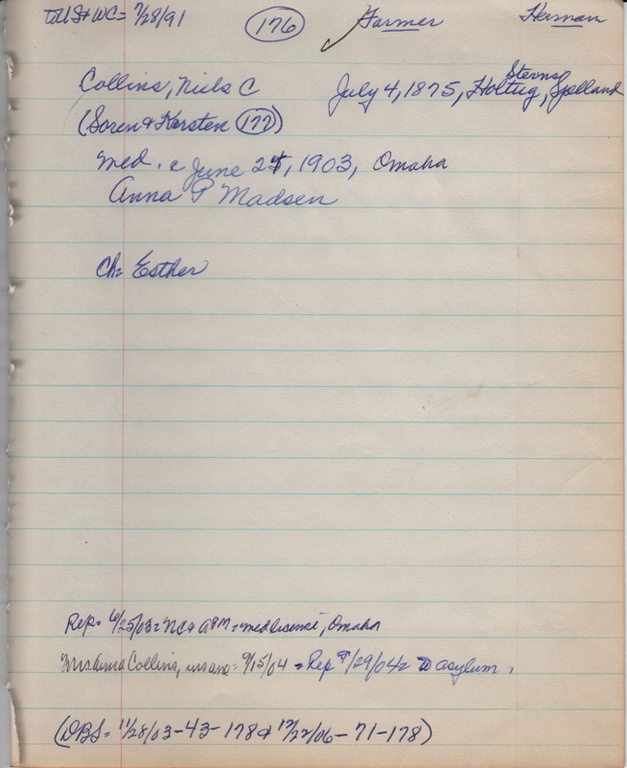 to US & WC= 7/28/91 (176) ✓ Farmer Herman
Collins, Niels C July 4, 1875, Holtug, Stevns, Sjelland
(Soren & Karsten (177))
med. c June 24, 1903, Omaha
Anna P Madsen
Ch= Esther
Rep= 6/25/03= NC & APM= med license, Omaha
Mrs Anna Collins, insane= 9/15/04 = Rep 9/29/04= to asylum.
(DBS= 11/28/03-43-178 & 12/22/06-71-178)